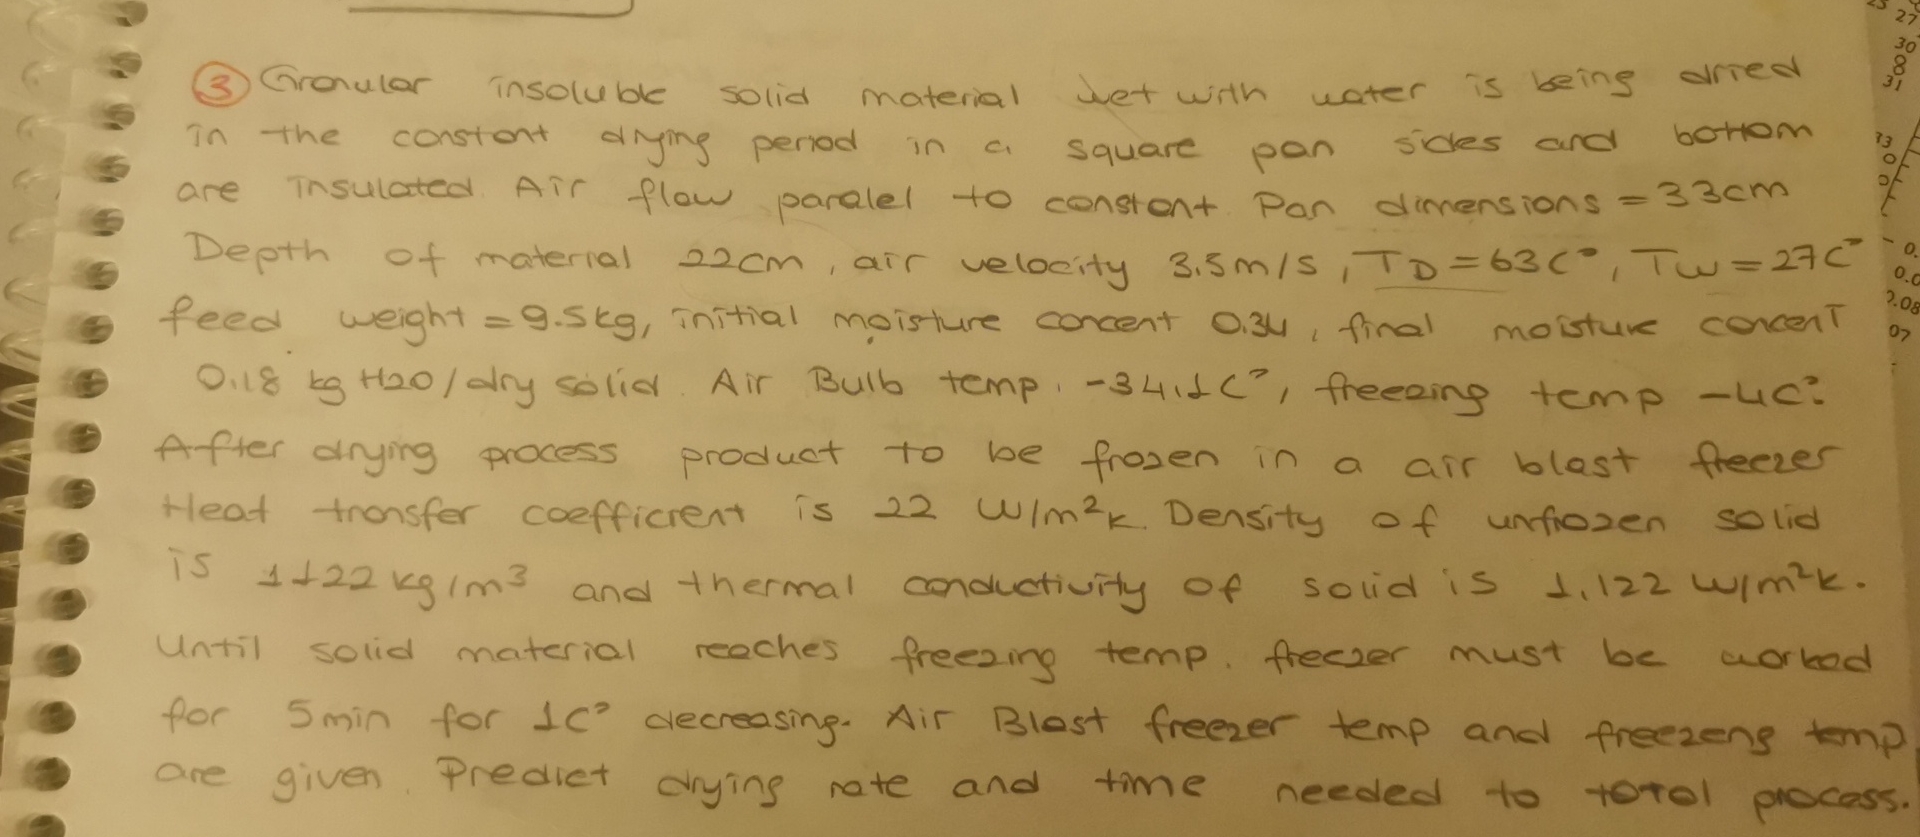 3 Granular insoluble solid material wet with water is being dried
in the constant drying period in a square pan sides and bottom
are insulated. Air flow paralel to constant. Pan dimensions = 33cm
Depth of material 22cm, air velocity 3.5m/s, TD = 63C°, Tw = 27C°
feed weight = 9.5kg, initial moisture concent 0.34, final moisture concent
0.18 kg H2O/dry solid. Air Bulb temp. -34.1C°, freezing temp -4C°.
After drying process product to be frozen in a air blast freezer
Heat transfer coefficient is 22 W/m²k. Density of unfrozen solid
is 1122 kg/m³ and thermal conductivity of solid is 1,122 W/m²k.
Until solid material reaches freezing temp. freezer must be worked
for 5min for 1C° decreasing. Air Blast freezer temp and freezeng temp
are given. Predict drying rate and time needed to total process.
27
30
8
31
13
0
0
0.
0.0
0.08
07